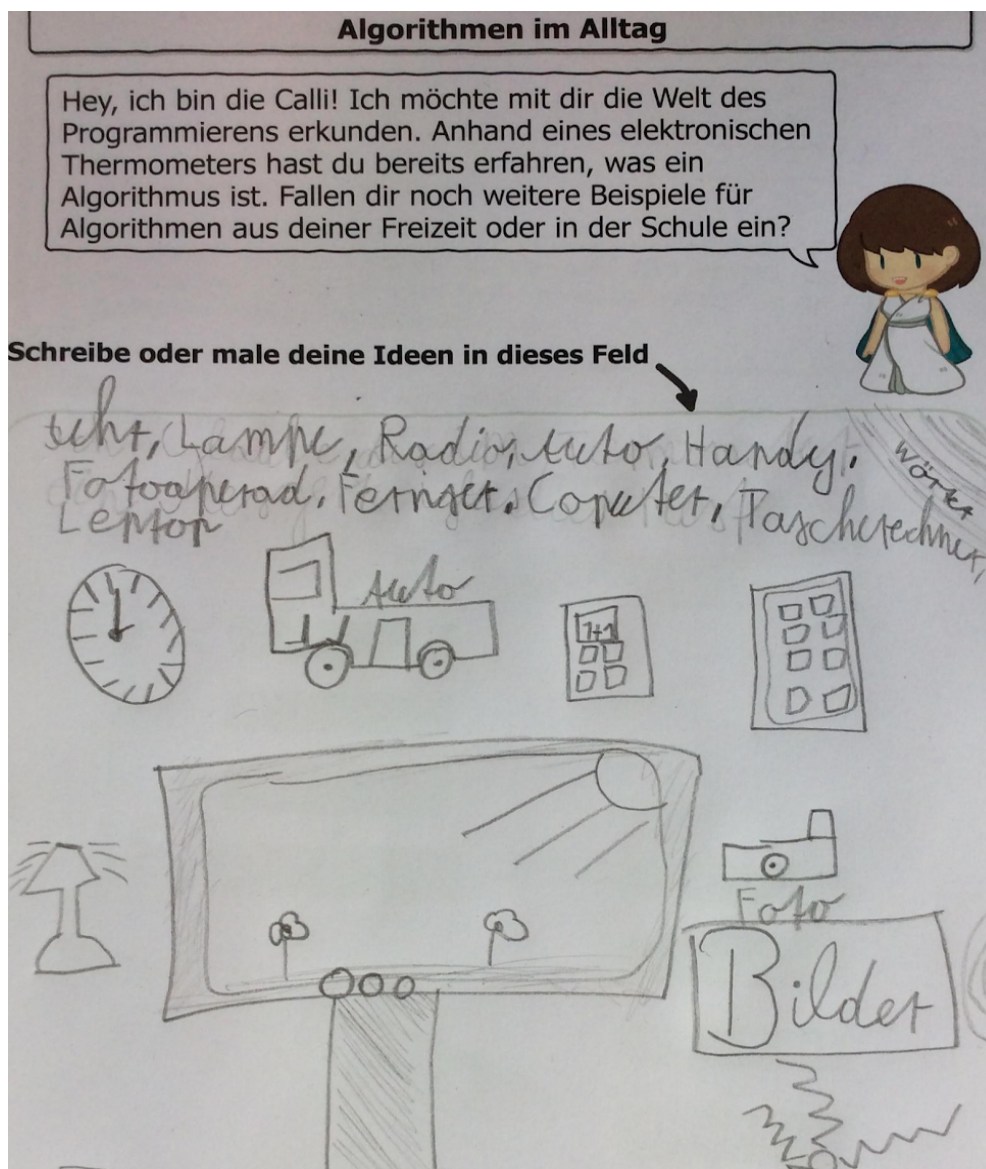 Algorithmen im Alltag
Hey, ich bin die Calli! Ich möchte mit dir die Welt des
Programmierens erkunden. Anhand eines elektronischen
Thermometers hast du bereits erfahren, was ein
Algorithmus ist. Fallen dir noch weitere Beispiele für
Algorithmen aus deiner Freizeit oder in der Schule ein?
Schreibe oder male deine Ideen in dieses Feld
Uhr, Lampe, Radio, Auto, Handy,
Fotoaperad, Fernset, Coputer, Tascherechner,
Leptop
Wörter
Auto
1+1
Foto
Bilder